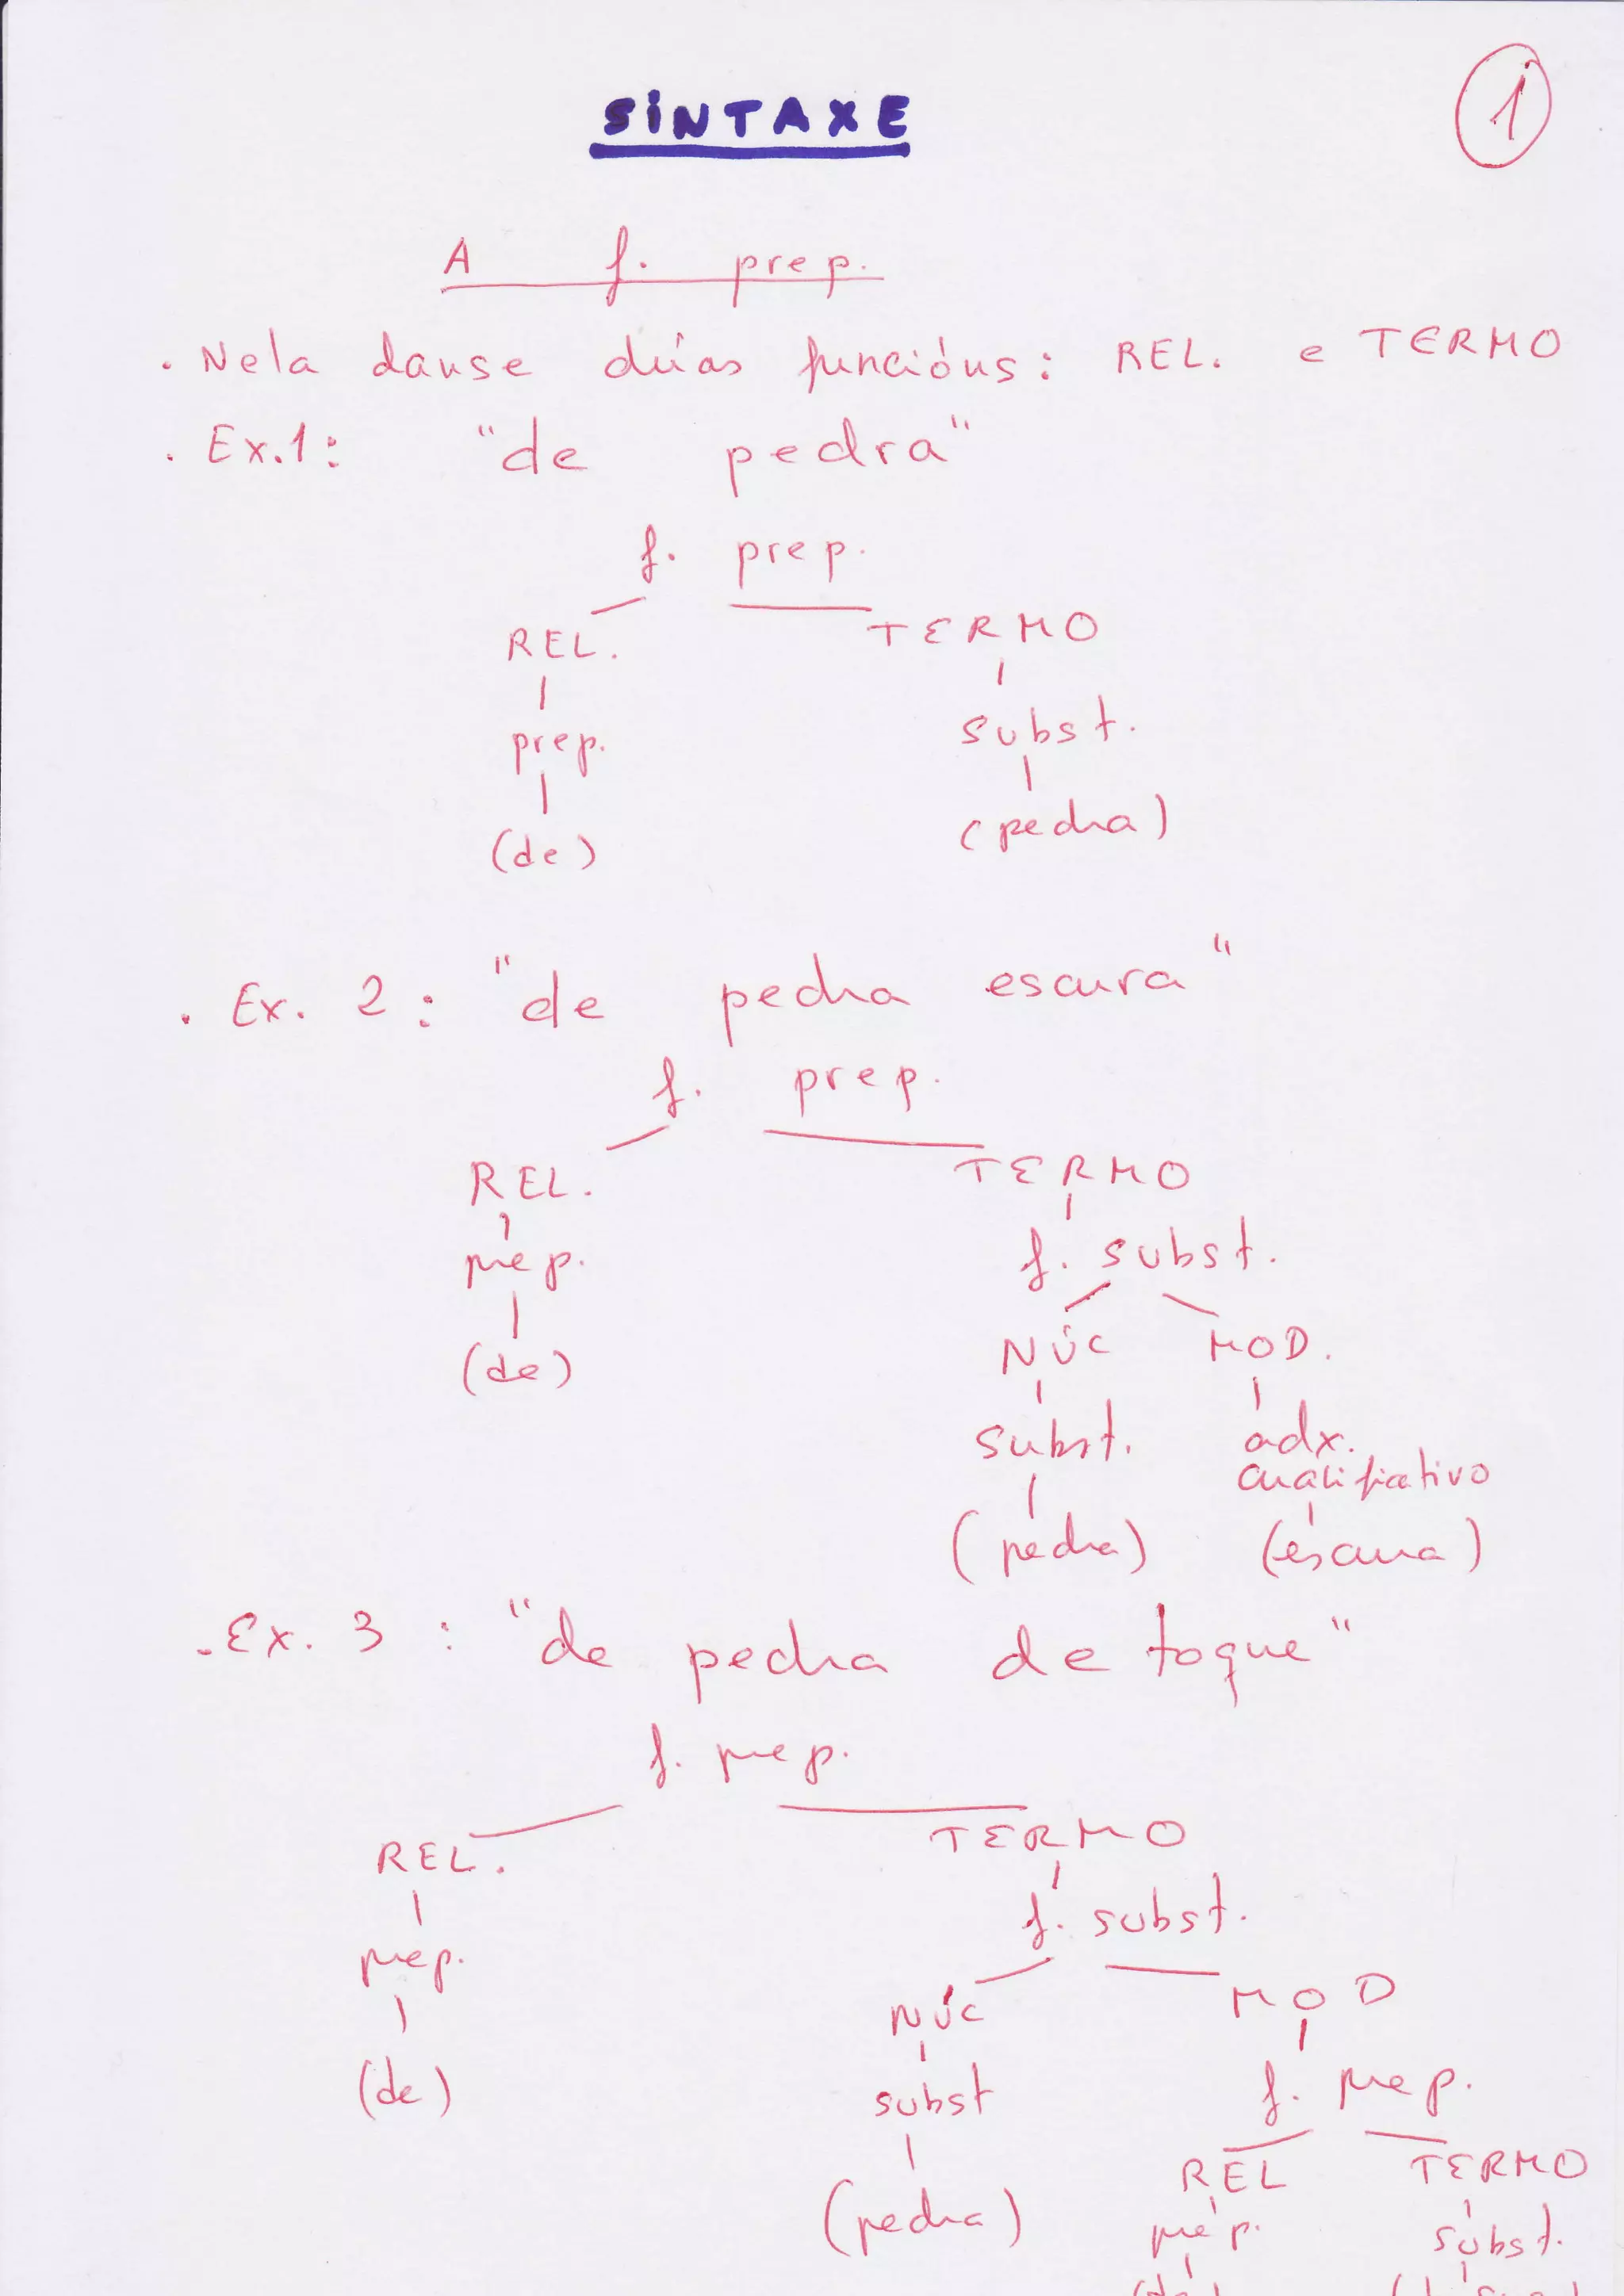 SINTAXE
1
A f. prep.
. Nela danse dúas funcións: REL. e TERMO
. Ex.1: "de pedra"
f. prep.
REL. TERMO
prep. subst.
(de) (pedra)
. Ex. 2: "de pedra escura"
f. prep.
REL. TERMO
prep. f. subst.
(de) NÚC MOD.
subst. adx.
cualificativo
(pedra) (escura)
. Ex. 3: "de pedra de toque"
f. prep.
REL. TERMO
prep. f. subst.
NÚC MOD
(de) subst f. prep.
REL TERMO
(pedra) prep. subst.